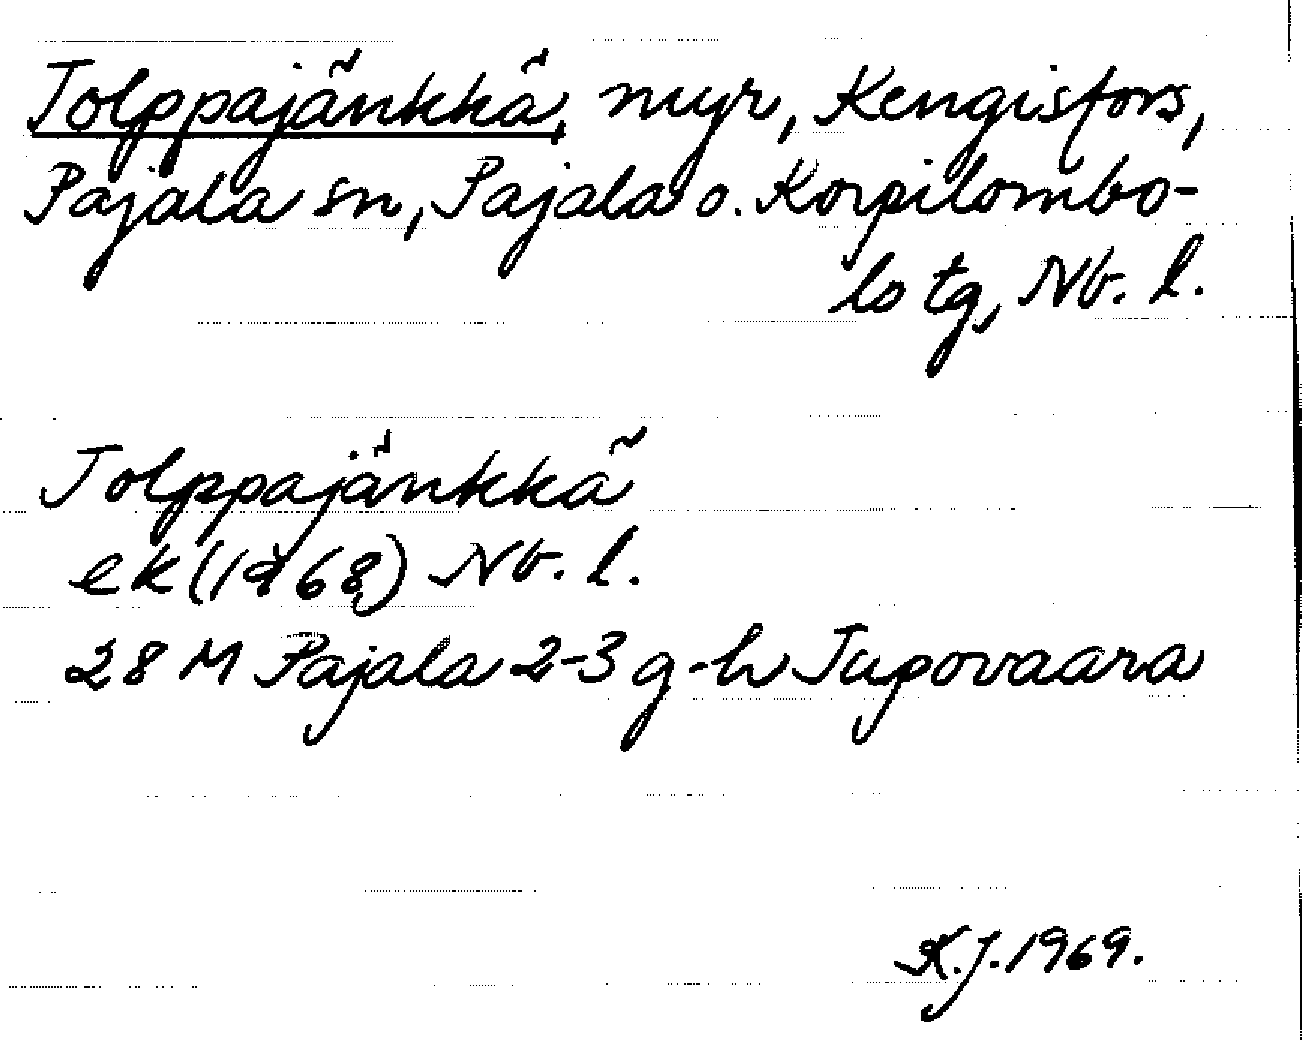 Tolppajänkkä, myr, Kengisfors,
Pajala sn, Pajala o. Korpilombo-
lo tg, Nb. l.
Tolppajänkkä
ek (1968) Nb. l.
28 M Pajala 2-3 g-h Jupovaara
K.J. 1969.